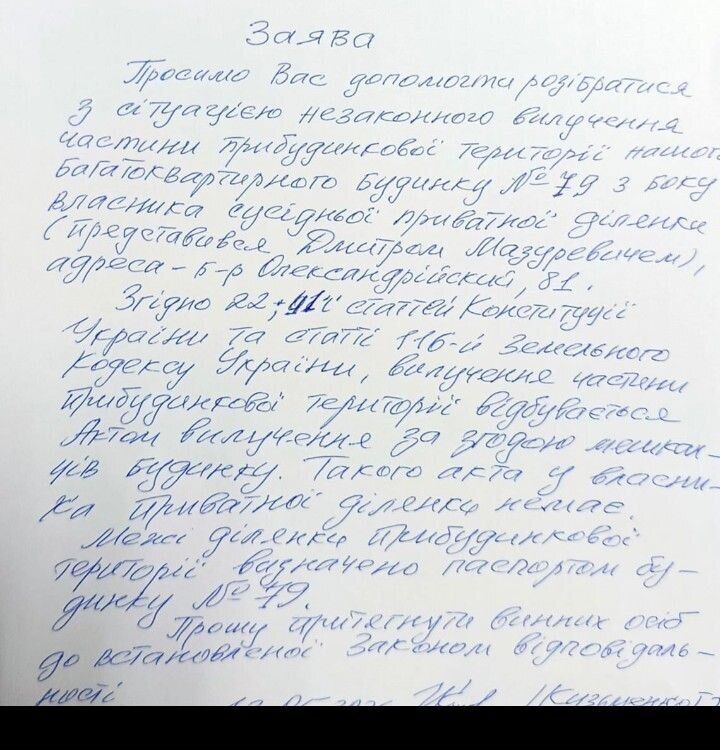 Заява
Просимо Вас допомогти розібратися
з ситуацією незаконного вилучення
частини прибудинкової території нашого
багатоквартирного будинку № 79 з боку
власника сусідньої приватної ділянки
(представився Дмитром Мазуревичем),
адреса – б-р Олександрійский, 81.
Згідно 22; 41ї статтей Конституції
України та статті 116-й Земельного
Кодексу України, вилучення частини
прибудинкової території відбувається
Актом вилучення за згодою мешкан-
ців будинку. Такого акта у власни-
ка приватної ділянки немає.
Межі ділянки прибудинкової
території визначено паспортом бу-
динку № 79.
Прошу притягнути винних осіб
до встановленої Законом відповідаль-
ності